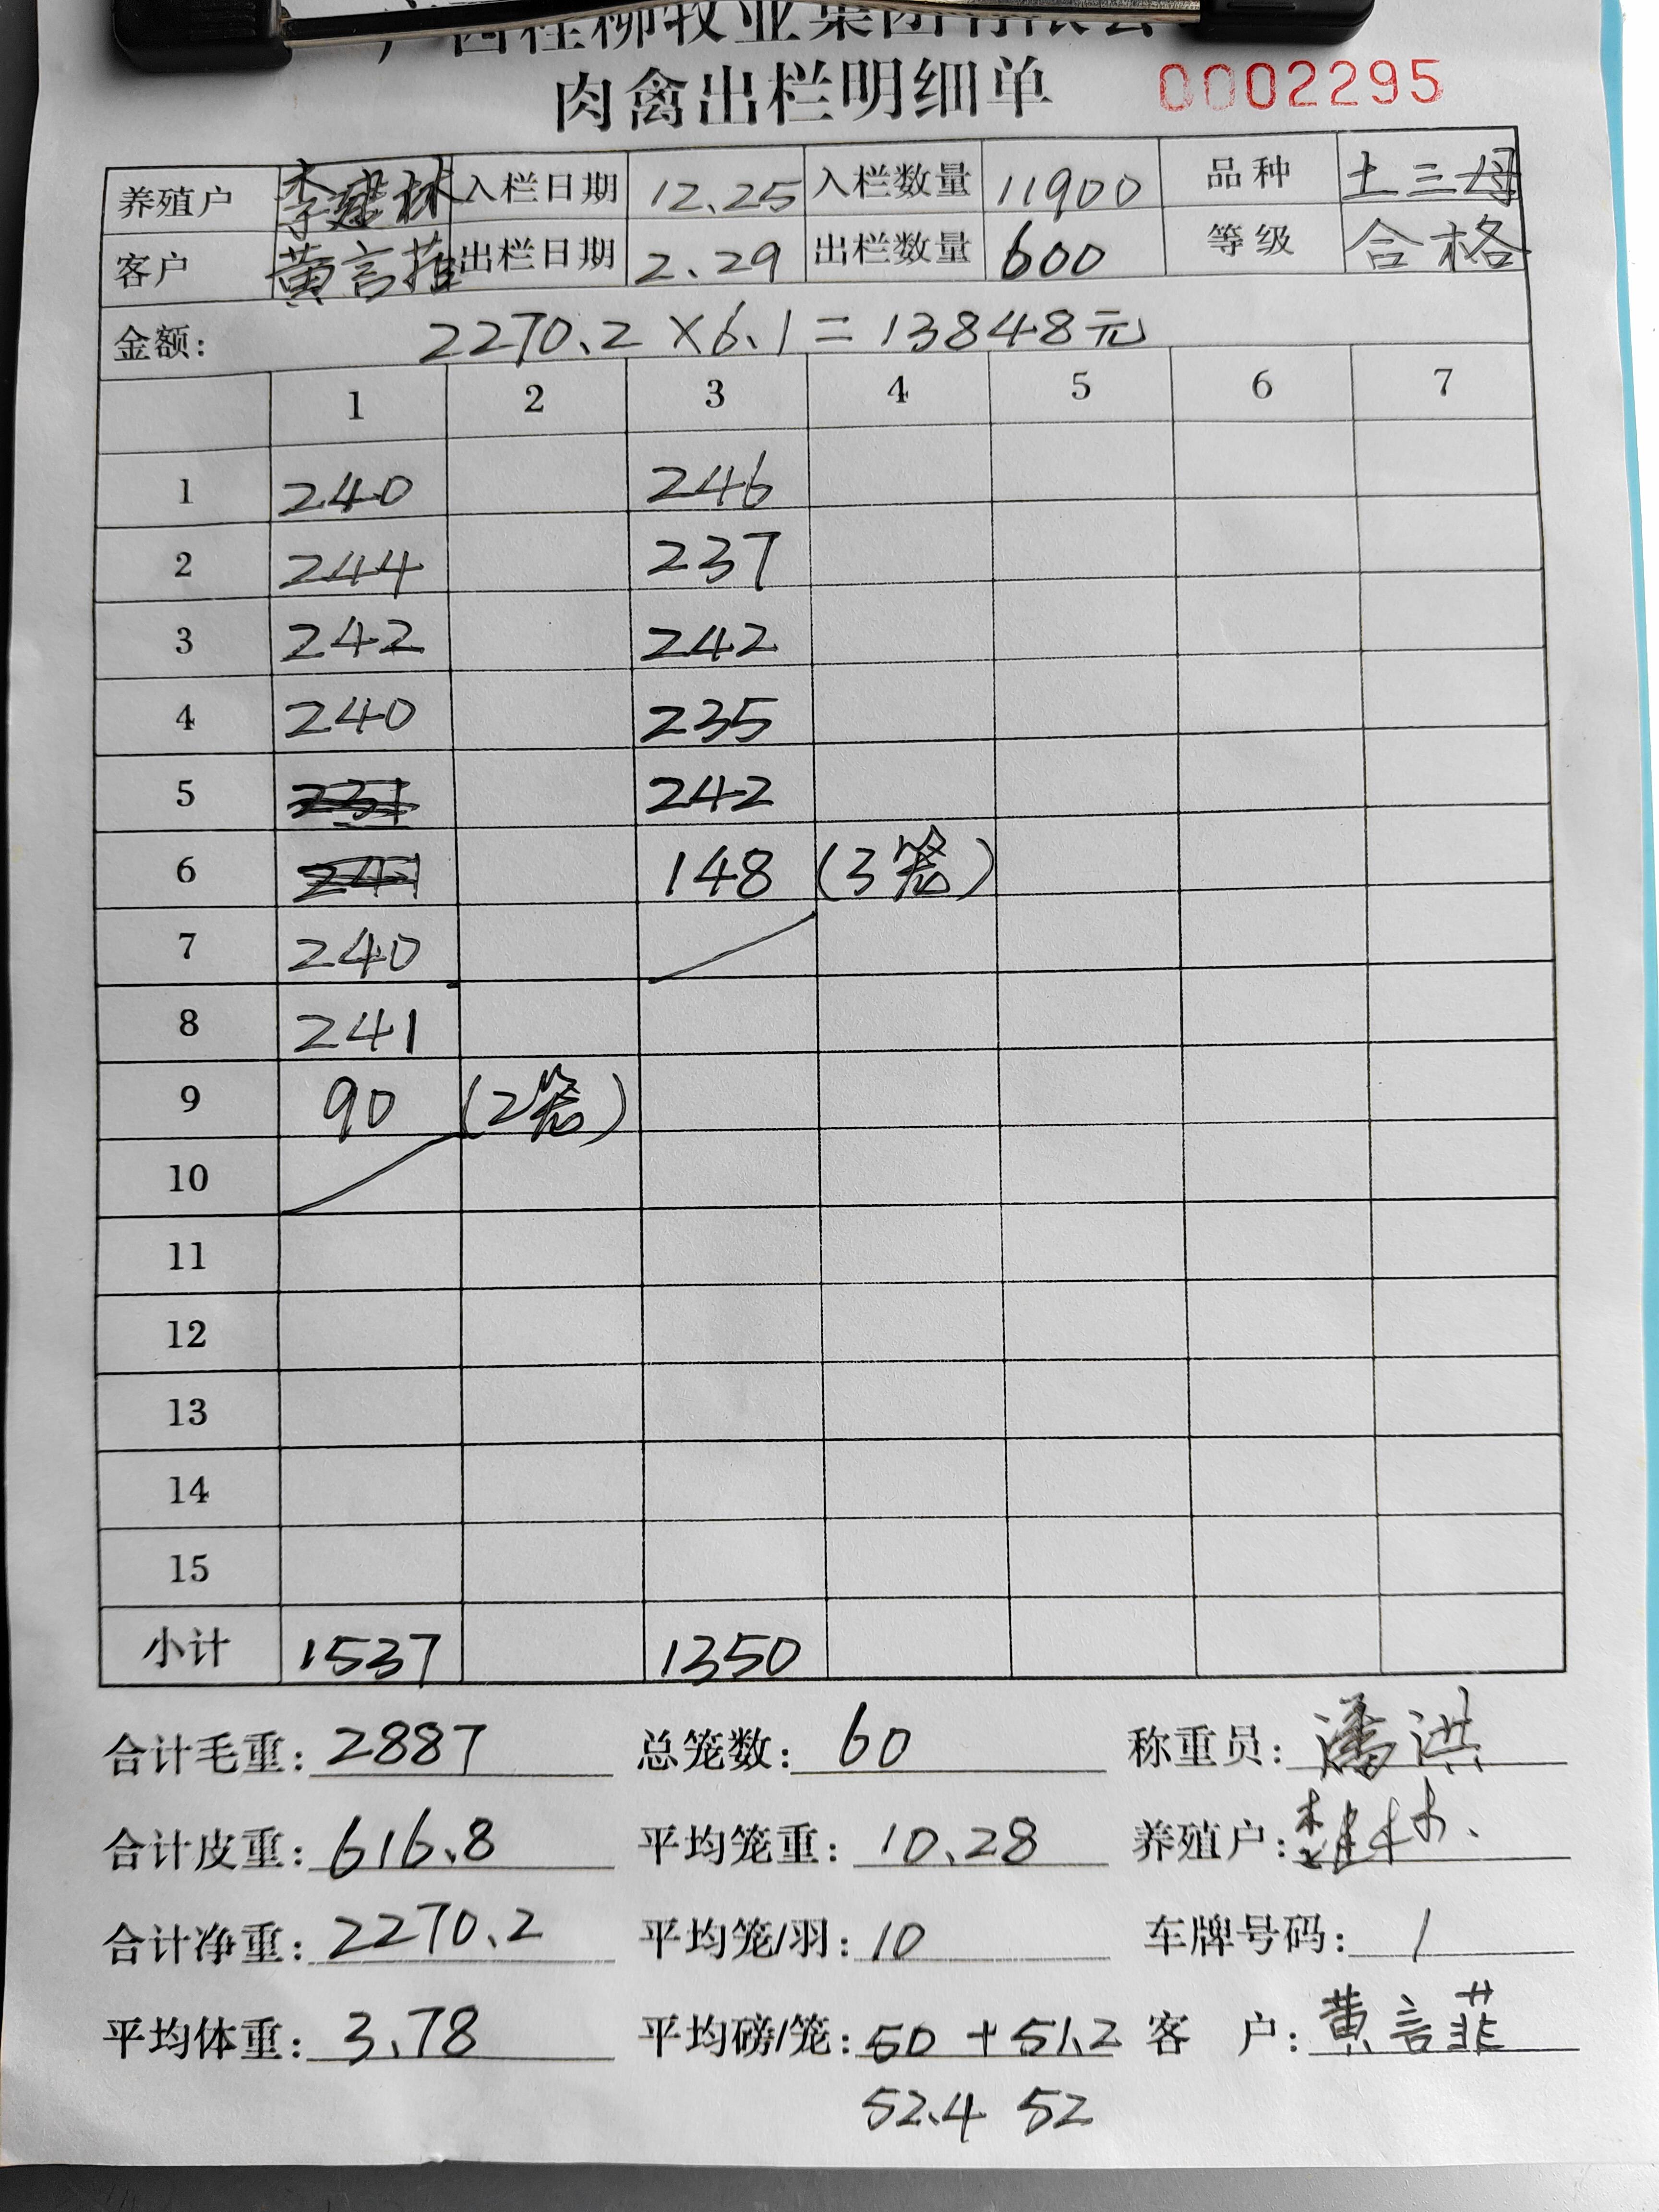 广西桂柳牧业集团有限公
肉禽出栏明细单 0002295
养殖户 李建林 入栏日期 12.25 入栏数量 11900 品种 土三母
客户 黄言菲 出栏日期 2.29 出栏数量 600 等级 合格
金额: 2270.2×6.1=13848元
1 2 3 4 5 6 7
1 240 246
2 244 237
3 242 242
4 240 235
5 231 242
6 241 148 (3笼)
7 240
8 241
9 90 (2笼)
10
11
12
13
14
15
小计 1537 1350
合计毛重: 2887 总笼数: 60 称重员: 潘洪
合计皮重: 616.8 平均笼重: 10.28 养殖户: 李建林
合计净重: 2270.2 平均笼/羽: 10 车牌号码: /
平均体重: 3.78 平均磅/笼: 50+51.2 客 户: 黄言菲
52.4 52